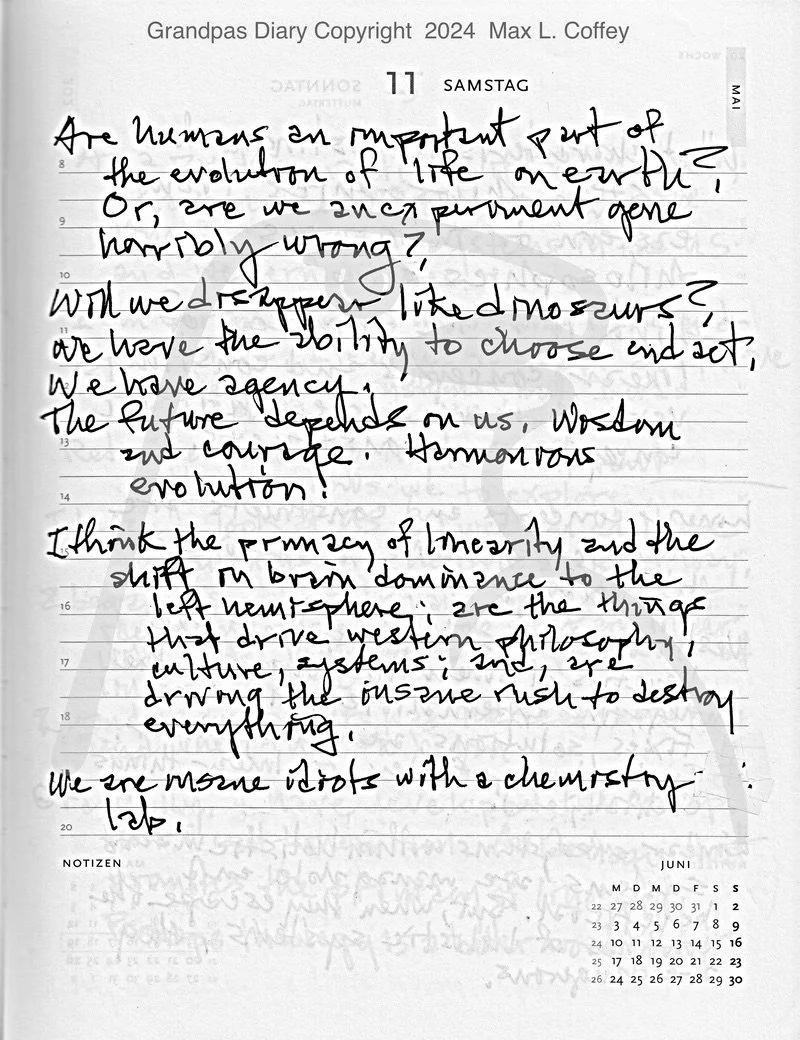 Grandpas Diary Copyright 2024 Max L. Coffey
11 SAMSTAG
MAI
Are humans an important part of
8
the evolution of life on earth?,
Or, are we an experiment gone
9
horribly wrong?,
10
Will we disappear like dinosaurs?,
11
we have the ability to choose and act,
We have agency.
The future depends on us. Wisdom
13
and courage. Harmonious
evolution!
14
I think the primacy of linearity and the
15
shift in brain dominance to the
16
left hemisphere; are the things
that drive western philosophy,
17
culture, systems; and, are
driving the insane rush to destroy
18
everything.
We are insane idiots with a chemistry
lab.
20
NOTIZEN
JUNI
M D M D F S S
22 27 28 29 30 31 1 2
23 3 4 5 6 7 8 9
24 10 11 12 13 14 15 16
25 17 18 19 20 21 22 23
26 24 25 26 27 28 29 30